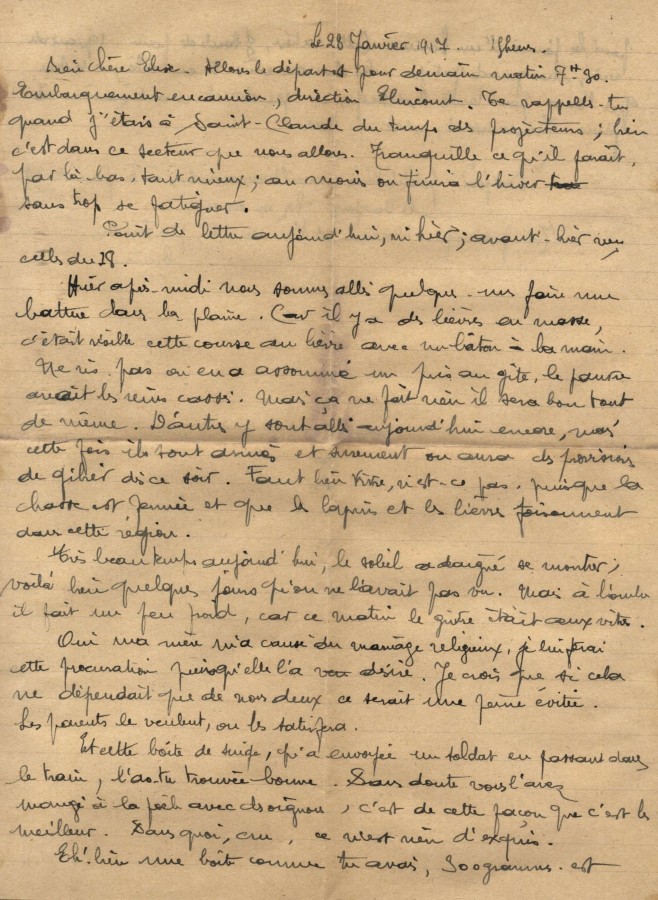 Le 28 Janvier 1917.
Bien chère Elise. Allons le départ est pour demain matin 7H 30.
Embarquement en camion, direction Elincourt. Te rappelles-tu
quand j'étais à Saint-Claude du temps des projecteurs ; bien
c'est dans ce secteur que nous allons. Tranquille ce qu'il paraît,
par là-bas, tant mieux ; au moins on finira l'hiver
sans trop se fatiguer.
Point de lettre aujourd'hui, ni hier ; avant-hier reçu
celle du 18.
Hier après-midi nous sommes allés quelques-uns faire une
battue dans la plaine. Car il y a des lièvres en masse,
c'était risible cette course au lièvre avec un bâton à la main.
Ne vis pas on en a assommé un pris au gîte, le pauvre
avait les reins cassés. Mais ça ne fait rien il sera bon tout
de même. D'autres y sont allés aujourd'hui encore, mais
cette fois ils sont armés et surement on aura des provisions
de gibier dès ce soir. Faut bien vivre, n'est-ce pas, puisque la
chasse est fermée et que les lapins et les lièvres foisonnent
dans cette région.
Très beau temps aujourd'hui, le soleil a daigné se montrer,
voilà bien quelques jours qu'on ne l'avait pas vu. Mais à l'ombre
il fait un peu froid, car ce matin le givre était aux vitres.
Oui ma mère m'a causé du mariage religieux, je lui ferai
cette procuration puisqu'elle l'a désiré. Je crois que si cela
ne dépendait que de nous deux ce serait une peine évitée.
Les parents le veulent, on les satisfera.
Et cette boîte de singe, qu'a envoyée un soldat en passant dans
le train, l'as-tu trouvée bonne. Sans doute vous l'avez
mangé à la poêle avec des oignons, c'est de cette façon que c'est le
meilleur. Sans quoi, cru, ce n'est rien d'exquis.
Eh! bien une boîte comme tu avais, 300 grammes est